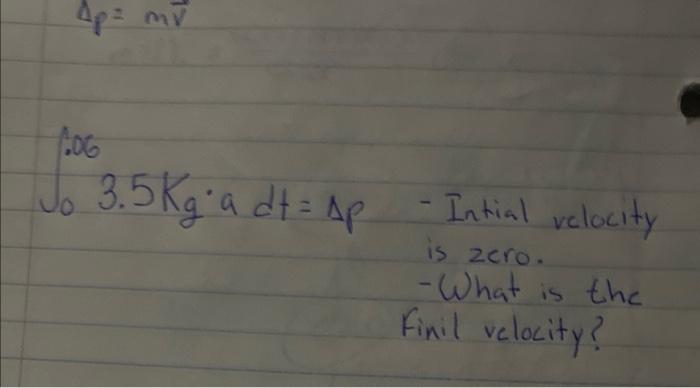 Δp = mv⃗
∫₀^.06 3.5Kg·a dt = Δp
- Intial velocity
is zero.
- What is the
Finil velocity?